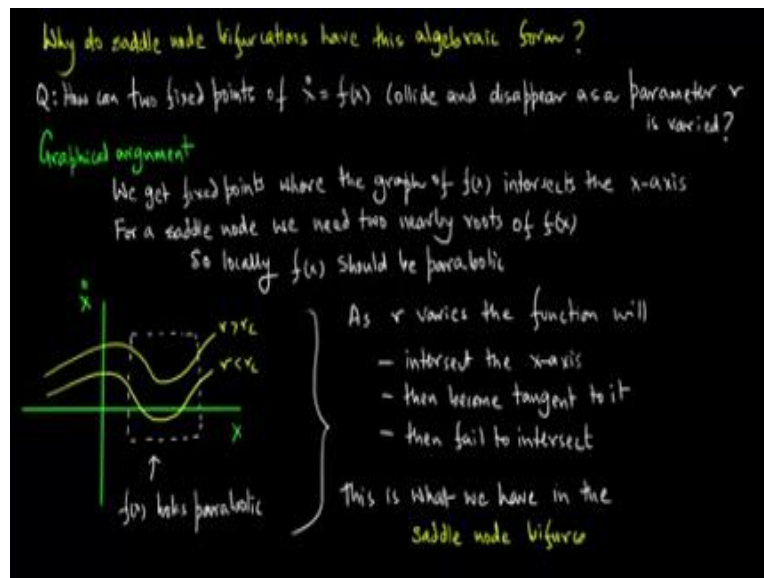 Why do saddle node bifurcations have this algebraic form?
Q: How can two fixed points of ẋ = f(x) collide and disappear as a parameter r
is varied?
Graphical argument
We get fixed points where the graph of f(x) intersects the x-axis
For a saddle node we need two nearby roots of f(x)
So locally f(x) should be parabolic
ẋ
r>rc
r<rc
x
f(x) looks parabolic
As r varies the function will
- intersect the x-axis
- then become tangent to it
- then fail to intersect
This is what we have in the
saddle node bifurca